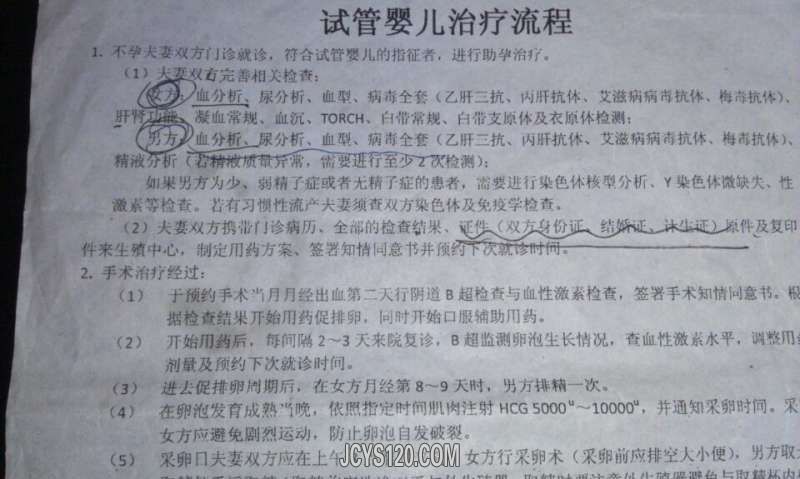 试管婴儿治疗流程
1. 不孕夫妻双方门诊就诊，符合试管婴儿的指征者，进行助孕治疗。
（1）夫妻双方完善相关检查：
女方：血分析、尿分析、血型、病毒全套（乙肝三抗、丙肝抗体、艾滋病病毒抗体、梅毒抗体）、
肝肾功能、凝血常规、血沉、TORCH、白带常规、白带支原体及衣原体检测；
男方：血分析、尿分析、血型、病毒全套（乙肝三抗、丙肝抗体、艾滋病病毒抗体、梅毒抗体）、
精液分析（若精液质量异常，需要进行至少2次检测）；
如果男方为少、弱精子症或者无精子症的患者，需要进行染色体核型分析、Y染色体微缺失、性
激素等检查。若有习惯性流产夫妻须查双方染色体及免疫学检查。
（2）夫妻双方携带门诊病历、全部的检查结果、证件（双方身份证、结婚证、计生证）原件及复印
件来生殖中心，制定用药方案、签署知情同意书并预约下次就诊时间。
2. 手术治疗经过：
（1） 于预约手术当月月经出血第二天行阴道B超检查与血性激素检查，签署手术知情同意书。根
据检查结果开始用药促排卵，同时开始口服辅助用药。
（2） 开始用药后，每间隔2~3天来院复诊，B超监测卵泡生长情况，查血性激素水平，调整用药
剂量及预约下次就诊时间。
（3） 进去促排卵周期后，在女方月经第8~9天时，男方排精一次。
（4） 在卵泡发育成熟当晚，依照指定时间肌肉注射HCG 5000u~10000u，并通知采卵时间。采
女方应避免剧烈运动，防止卵泡自发破裂。
（5） 采卵日夫妻双方应在上午 女方行采卵术（采卵前应排空大小便），男方取
JCYS120.COM